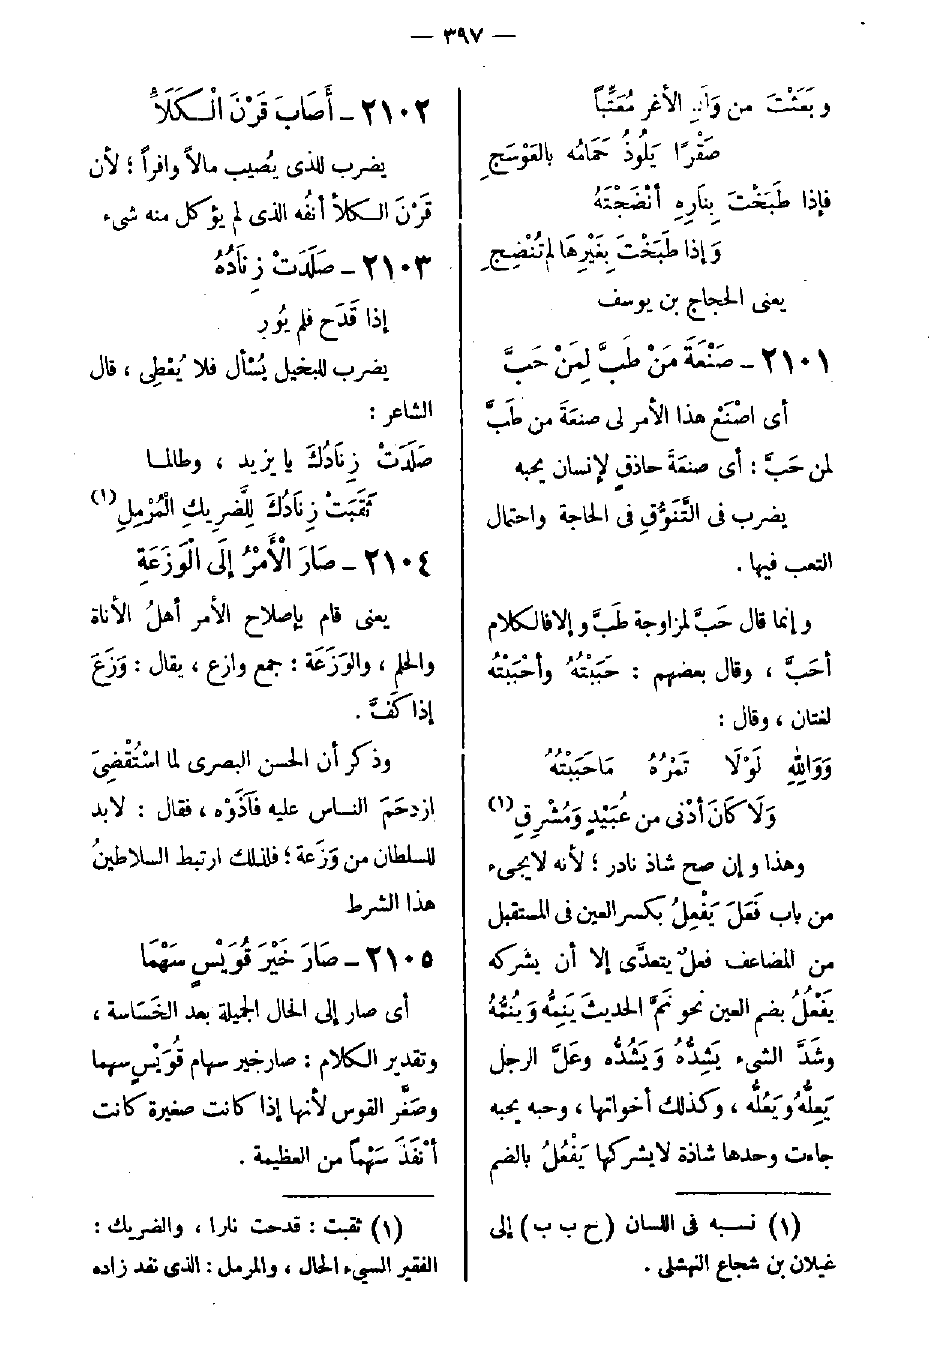 — ٣٩٧ —
وبَعَثْتَ من وَلَدِ الأغر مُعَتِّباً
صَقْرًا يَلُوذُ حَمَامُه بالعَوْسَجِ
فإذا طَبَخْتَ بِنَارِهِ أنْضَجْتَهُ
وَإذا طَبَخْتَ بِغَيْرِهَا لم تُنْضِجِ
يعنى الحجاج بن يوسف
٢١٠١ - صَنْعَةَ مَنْ طَبَّ لِمَنْ حَبَّ
أى اصْنَعْ هذا الأمر لى صنعَةَ من طَبَّ
لمن حَبَّ : أى صنعَةَ حاذقٍ لإنسان يحبه
يضرب فى التَّنَوُّقِ فى الحاجة واحتمال
التعب فيها .
وإنما قال حَبَّ لمزاوجة طَبَّ وإلا فالكلام
أحَبَّ ، وقال بعضهم : حَبَبْتُهُ وأحْبَبْتُه
لغتان ، وقال :
وَوَاللهِ لَوْلَا تَمْرُهُ مَا حَبَبْتُهُ
وَلَا كَانَ أدْنى من عُبَيْدٍ وَمُشْرِقِ (١)
وهذا وإن صح شاذ نادر ؛ لأنه لا يجىء
من باب فَعَلَ يَفْعِلُ بكسر العين فى المستقبل
من المضاعف فعلٌ يتعدَّى إلا أن يشركه
يَفْعُلُ بضم العين نحو نَمَّ الحديثَ يَنِمُّه وَيَنُمُّهُ
وشَدَّ الشىء يَشِدُّهُ وَيَشُدُّه وعَلَّ الرجل
يَعِلُّهُ وَيَعُلُّه ، وكذلك أخواتها ، وحبه يحبه
جاءت وحدها شاذة لا يشركها يَفْعُلُ بالضم
(١) نسبه فى اللسان (ح ب ب) إلى
غيلان بن شجاع النهشلى .
٢١٠٢ - أَصَابَ قَرْنَ الْكَلَأِ
يضرب للذى يُصيب مالاً وافراً ؛ لأن
قَرْنَ الكلأ أنفُه الذى لم يؤكل منه شىء
٢١٠٣ - صَلَدَتْ زِنَادُهُ
إذا قَدَح فلم يُورِ
يضرب للبخيل يُسْأل فلا يُعْطِى ، قال
الشاعر :
صَلَدَتْ زِنَادُكَ يا يزيد ، وطالما
ثَقَبَتْ زِنَادُكَ لِلضَّرِيكِ الْمُرْمِلِ (١)
٢١٠٤ - صَارَ الْأَمْرُ إلَى الْوَزَعَةِ
يعنى قام بإصلاح الأمر أهلُ الأناة
والحلم ، والوَزَعَة : جمع وازع ، يقال : وَزَعَ
إذا كَفَّ .
وذكر أن الحسن البصرى لما اسْتُقْضِىَ
ازدحَمَ الناس عليه فآذَوْه ، فقال : لابد
للسلطان من وَزَعة ؛ فلذلك ارتبط السلاطينُ
هذا الشرط
٢١٠٥ - صَارَ خَيْرَ قُوَيْسٍ سَهْمَا
أى صار إلى الحال الجميلة بعد الخَسَاسة ،
وتقدير الكلام : صار خير سهام قُوَيْسٍ سهما
وصَغَّر القوس لأنها إذا كانت صغيرة كانت
أنْفَذَ سَهْماً من العظيمة .
(١) ثقبت : قدحت نارا ، والضريك :
الفقير السيىء الحال ، والمرمل : الذى نفد زاده